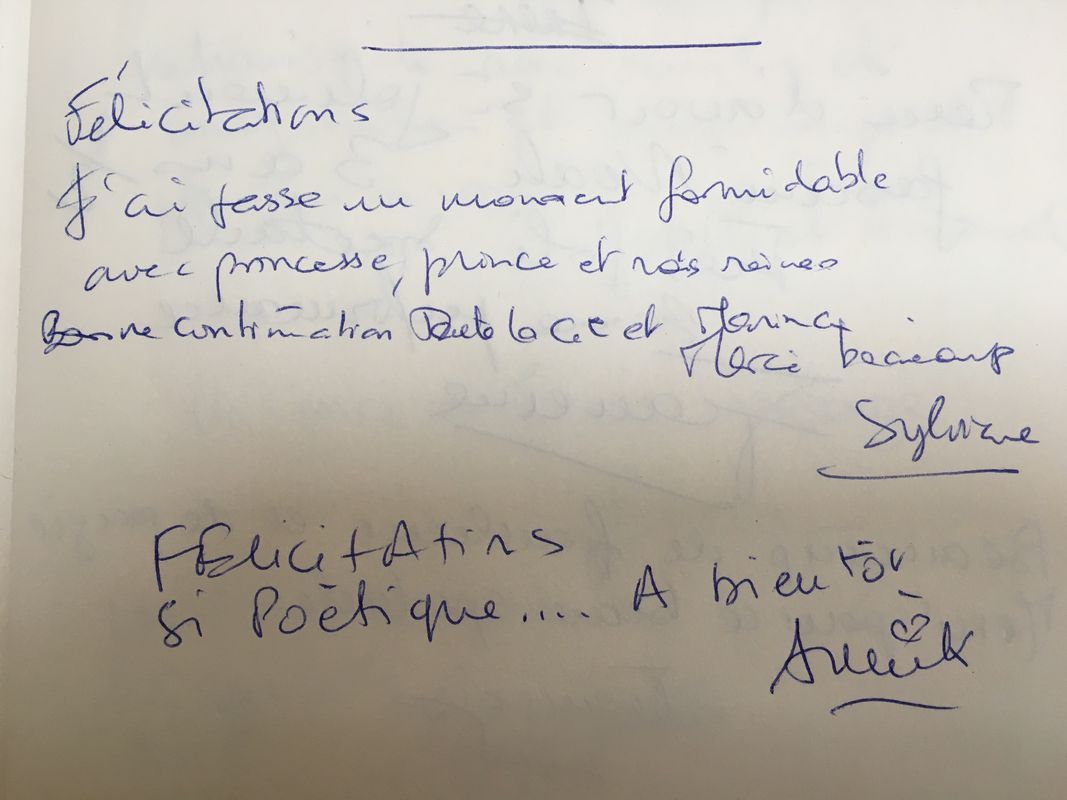 Félicitations
J'ai passé un moment formidable
avec princesse, prince et rois reines
Bonne continuation Toute la Cie et
Merci beaucoup
Sylviane
FÉlicitAtins
Si Poètique.... A bientôt
Annick